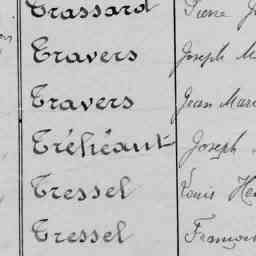 Trassard Pierre
Travers Joseph
Travers Jean Marie
Tréhéault Joseph
Tressel Louis
Tressel François